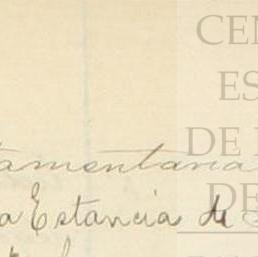 CEN
ES
DE
DE
tamentaria
a Estancia de